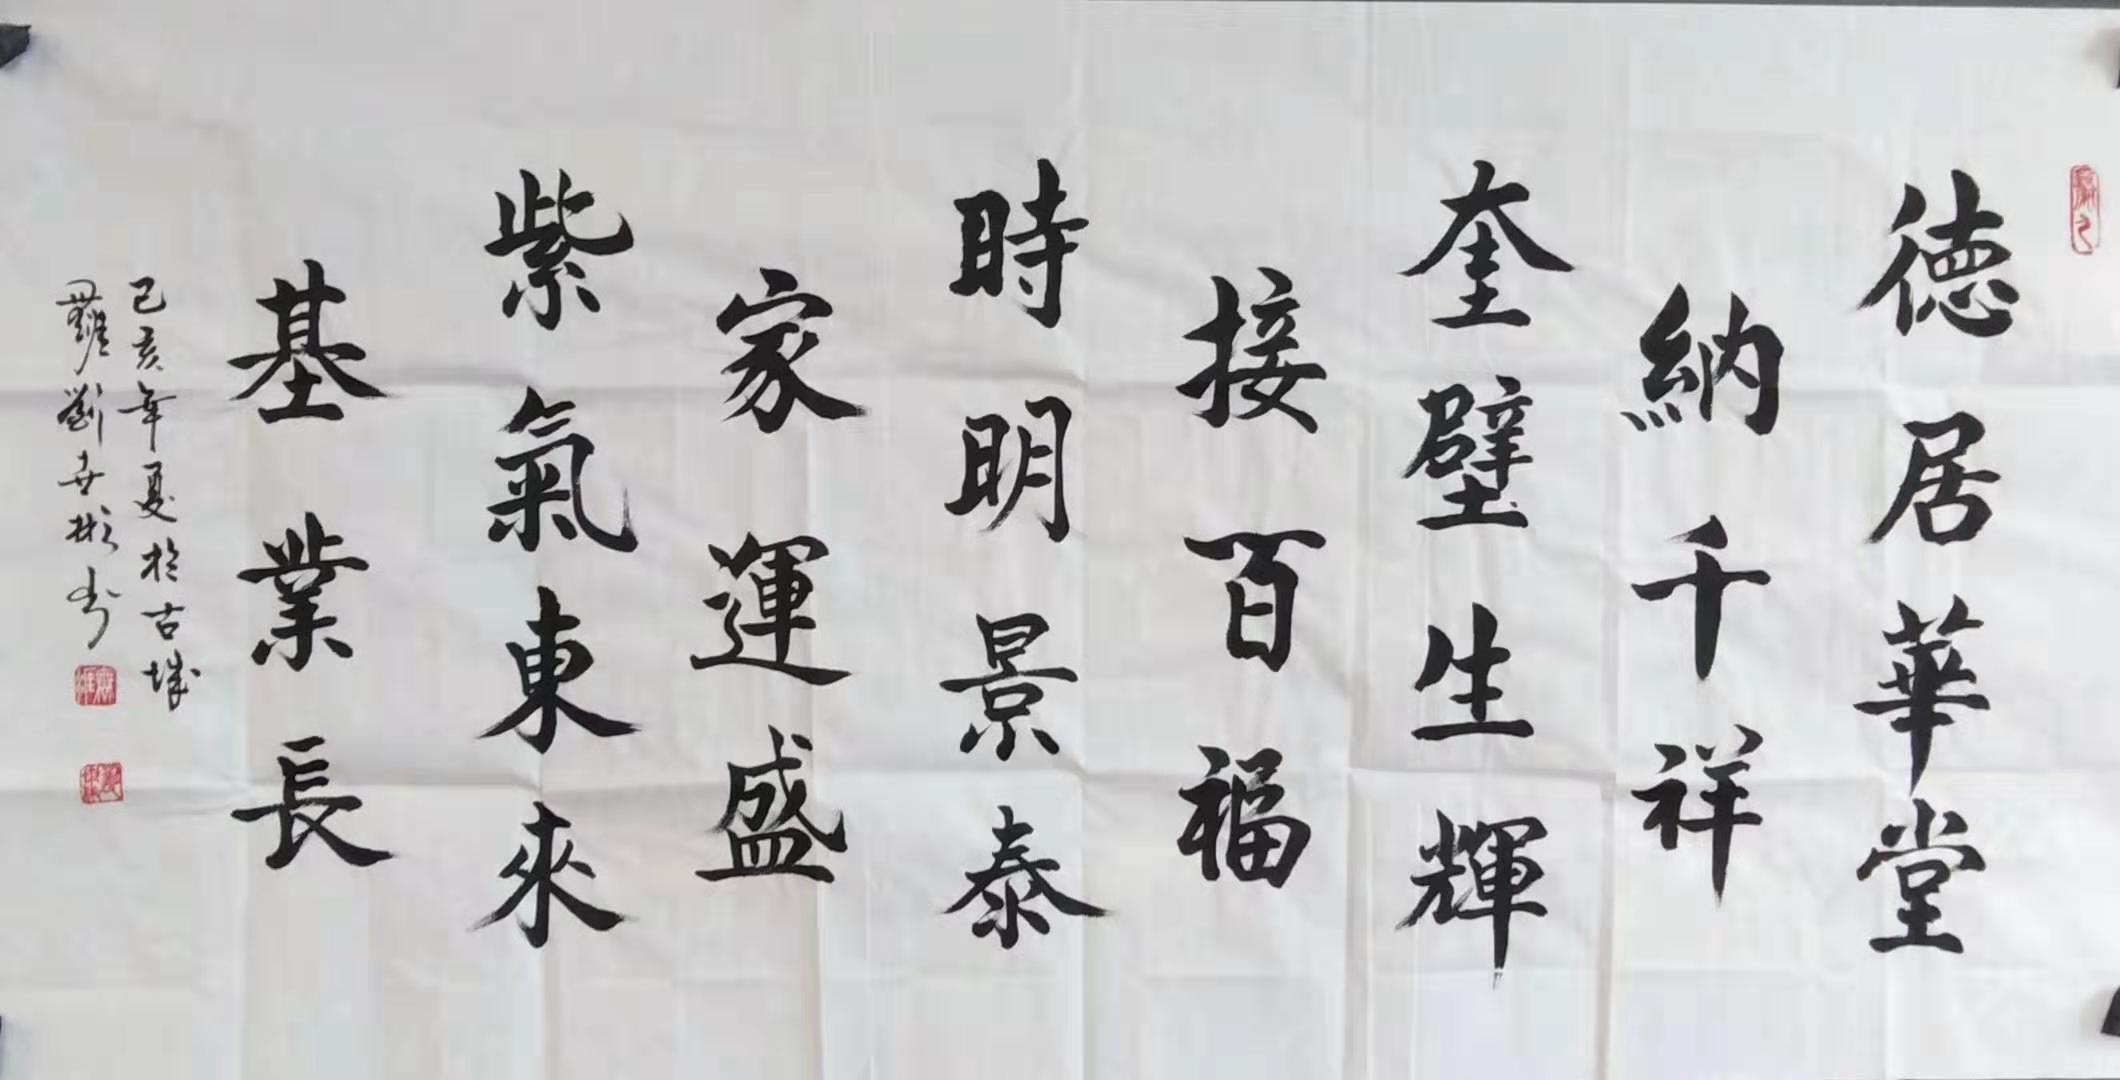 徳居華堂
納千祥
奎壁生輝
接百福
時明景泰
家運盛
紫氣東來
基業長
己亥年夏於古城
劉世彬书